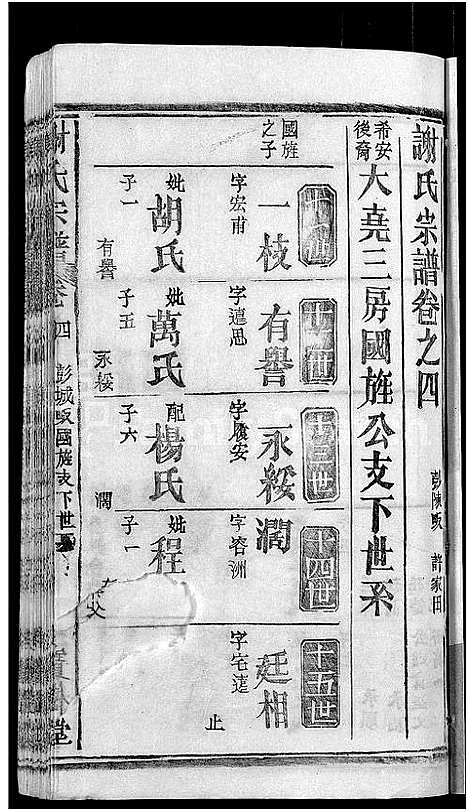 謝氏宗譜卷之四
彭城畈 許家田
希安後裔
大堯三房國旌公支下世系
國旌之子
十一世
一枝
字宏甫
妣胡氏
子一
有譽
十二世
有譽
字遠思
妣萬氏
子五
永綏
十三世
永綏
字履安
配楊氏
子六
濶
十四世
濶
字容洲
妣程
子一
十五世
廷相
字宅逵
止
謝氏宗譜
卷四
彭城畈國旌支下世
堂